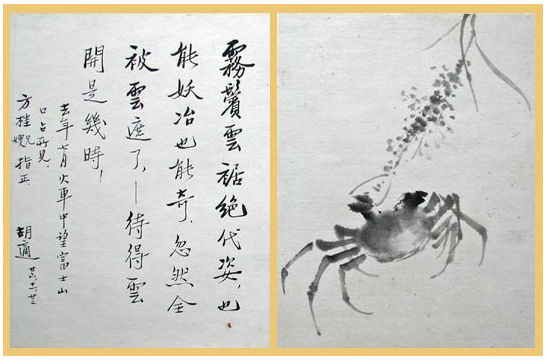 霧鬢雲裾絕代姿,也
能妖冶也能奇。忽然全
被雲遮了,—待得雲
開是幾時!
去年七月火車中望富士山
口占所見.
方桂 指正.
胡適